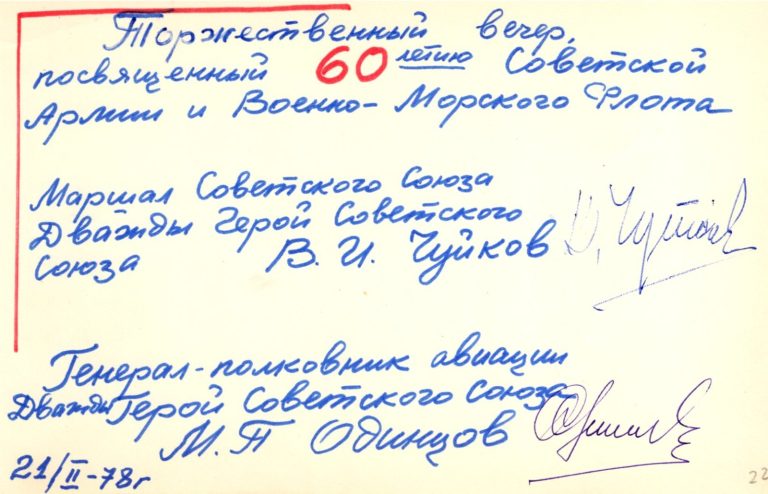 Торжественный вечер,
посвященный 60 летию Советской
Армии и Военно-Морского Флота
Маршал Советского Союза
Дважды Герой Советского
Союза В. И. Чуйков В. Чуйков
Генерал-полковник авиации
Дважды Герой Советского Союза
М. П Одинцов
21/II-78г
22